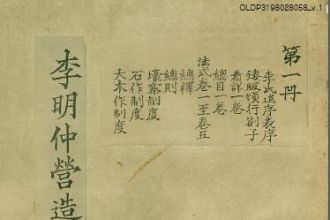 OLDP3198028058_v.1
第一冊
李氏進序表序
鏤版頒行劄子
看詳一卷
總目一卷
法式卷一至卷五
總釋
總則
壕寨制度
石作制度
大木作制度
李明仲營造